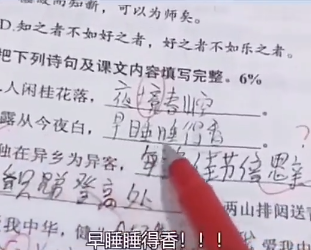 知断，可以为师矣。
D.知之者不如好之者，好之者不如乐之者。
把下列诗句及课文内容填写完整。6%
人闲桂花落，夜静春山空。
露从今夜白，早睡睡得香。
独在异乡为异客，每佳节倍思亲
登高处 两山排闼送青
我中华，健 爱我中
早睡睡得香！！！